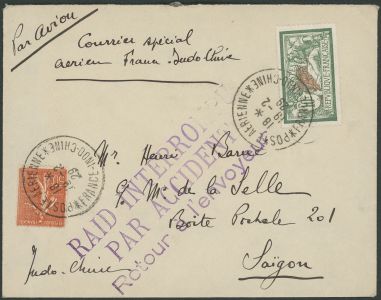 Par Avion
Courrier spécial
aérien France Indo Chine
RÉPUBLIQUE FRANÇAISE
FRANCE*INDO-CHINE*POSTE AERIENNE*
FRANCE*INDO-CHINE*POSTE AERIENNE*
Mr. Henri
RAID INTERROMPU
PAR ACCIDENT
Retour à l'envoyeur
Mr de la Selle
Boîte Postale 201
Saïgon
Indo-Chine